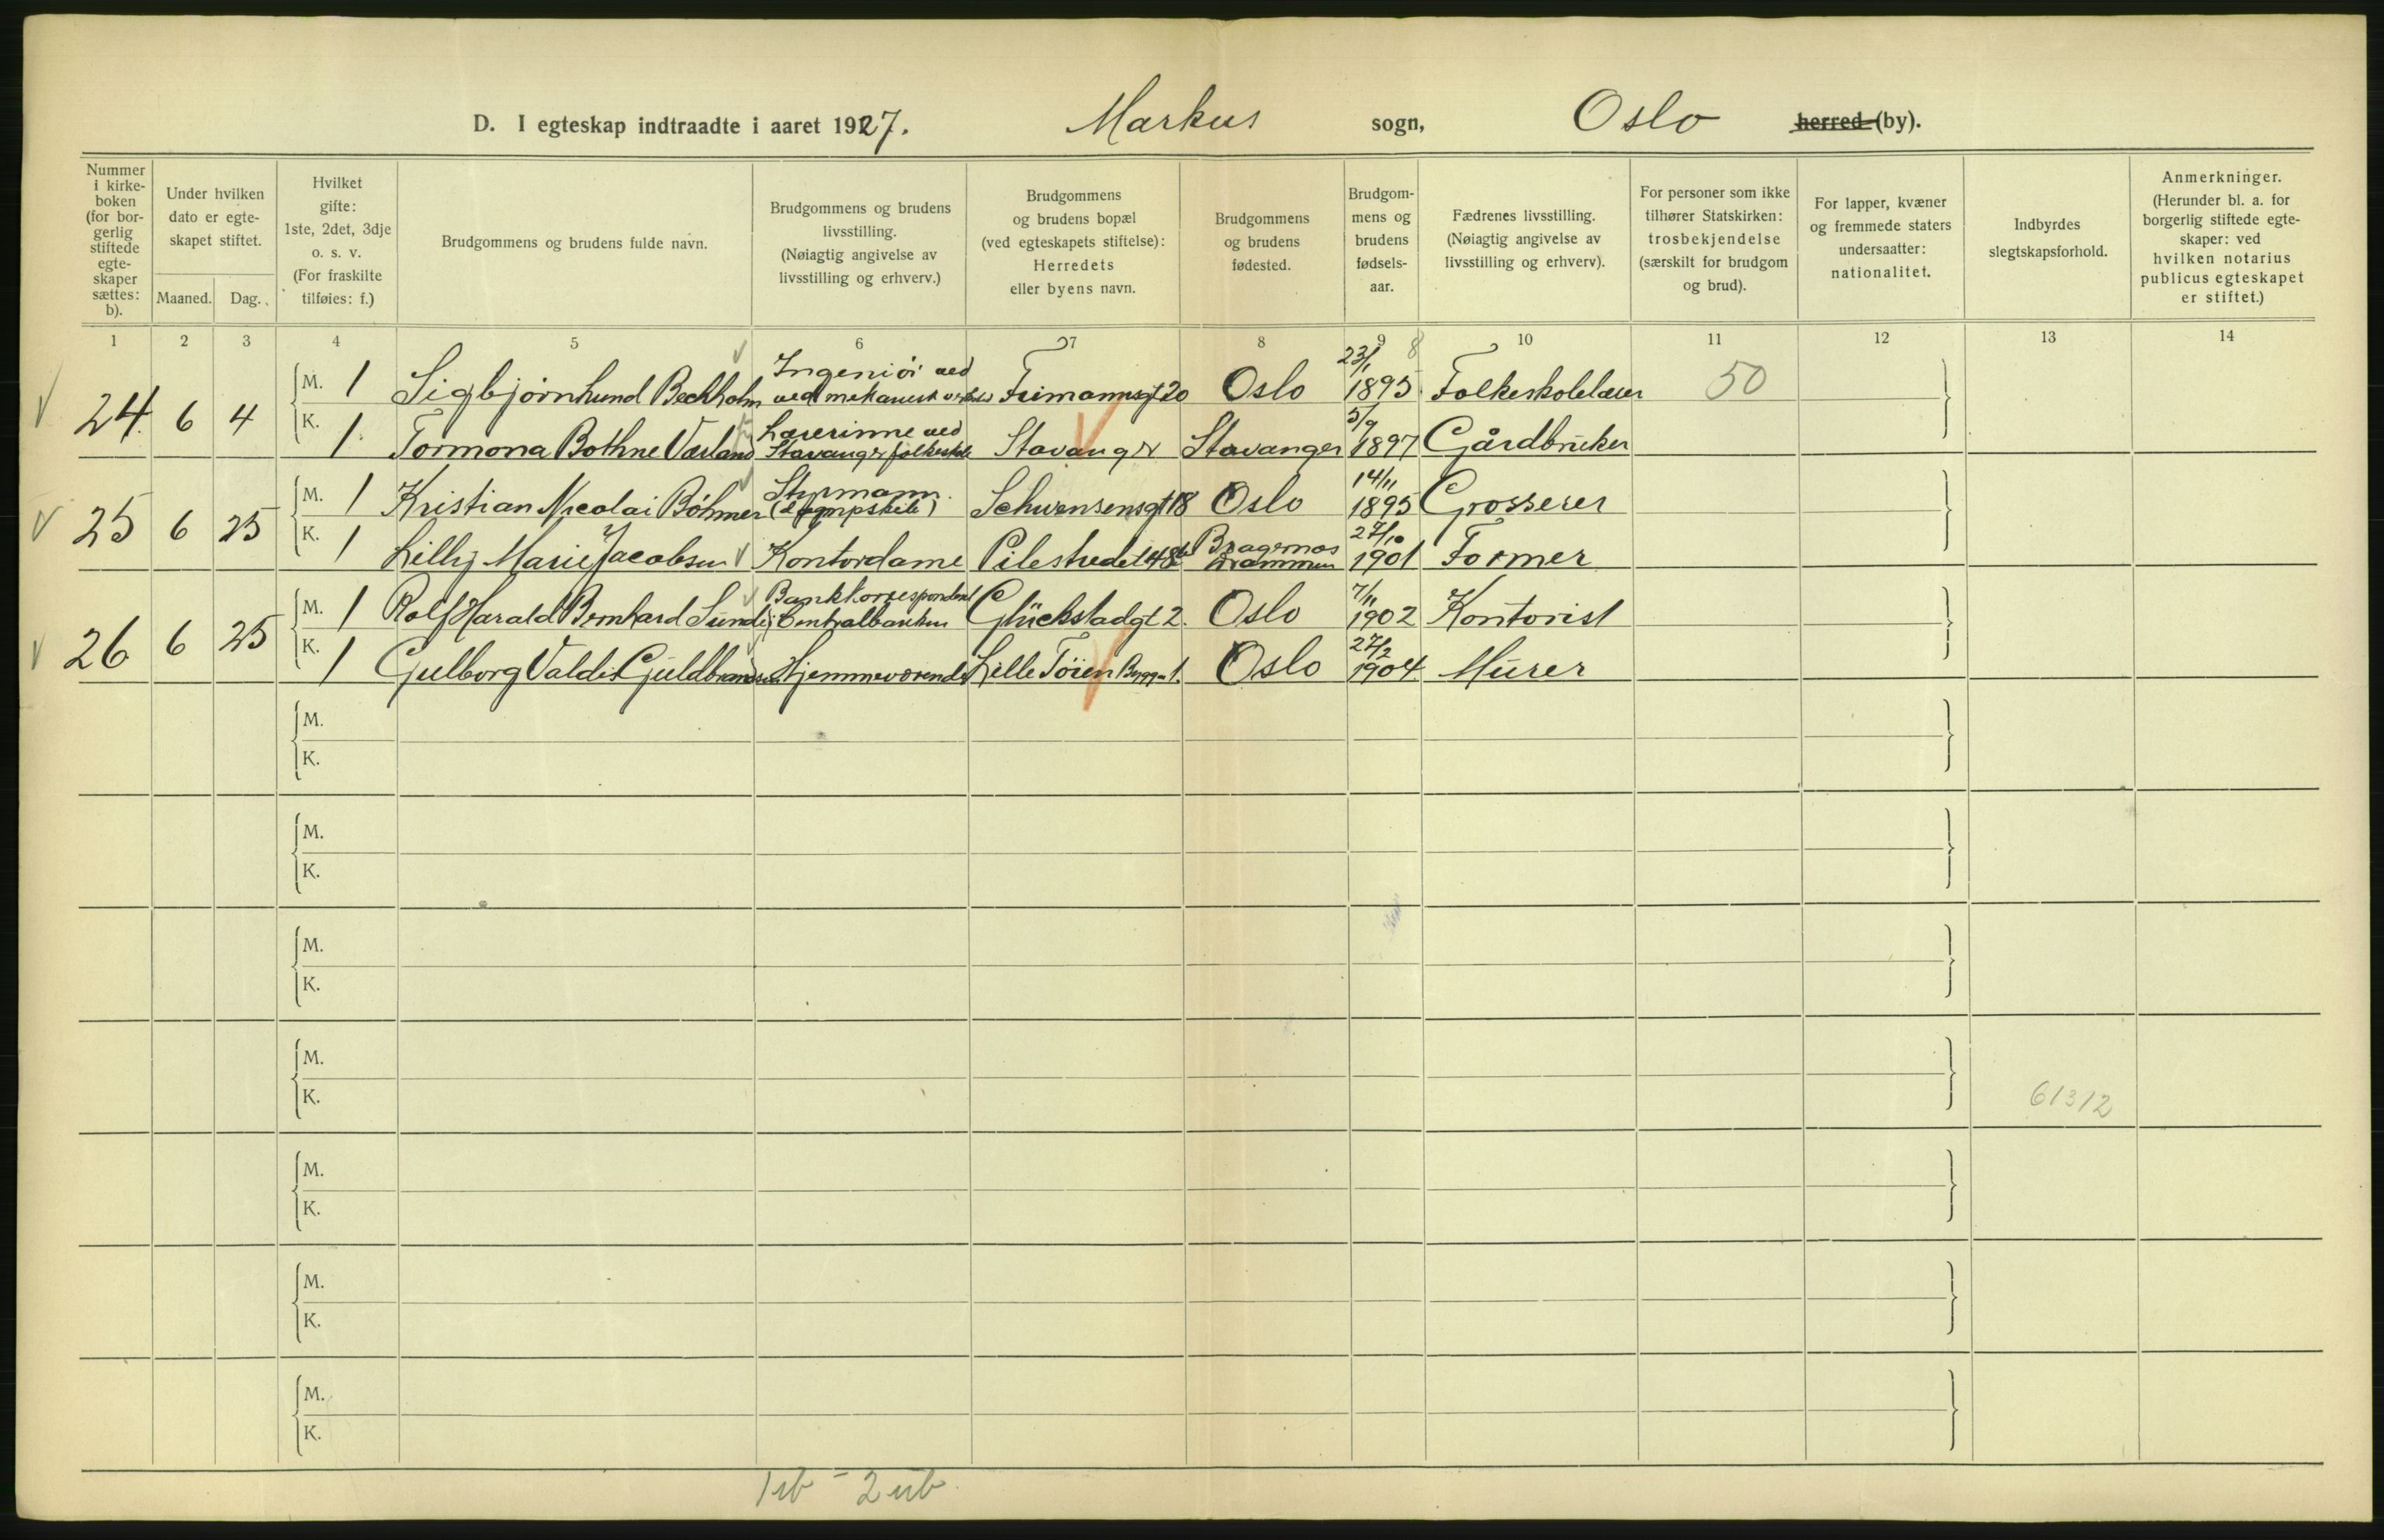 D. I egteskap indtraadte i aaret 1927. Markus sogn, Oslo herred (by).
Nummer i kirkeboken (for borgerlig stiftede egteskaper sættes: b).
Under hvilken dato er egteskapet stiftet.
Maaned. Dag.
Hvilket gifte: 1ste, 2det, 3dje o. s. v. (For fraskilte tilføies: f.)
Brudgommens og brudens fulde navn.
Brudgommens og brudens livsstilling. (Nøiagtig angivelse av livsstilling og erhverv.)
Brudgommens og brudens bopæl (ved egteskapets stiftelse): Herredets eller byens navn.
Brudgommens og brudens fødested.
Brudgommens og brudens fødselsaar.
Fædrenes livsstilling. (Nøiagtig angivelse av livsstilling og erhverv).
For personer som ikke tilhører Statskirken: trosbekjendelse (særskilt for brudgom og brud).
For lapper, kvæner og fremmede staters undersaatter: nationalitet.
Indbyrdes slegtskapsforhold.
Anmerkninger. (Herunder bl. a. for borgerlig stiftede egteskaper: ved hvilken notarius publicus egteskapet er stiftet.)
1 2 3 4 5 6 7 8 9 10 11 12 13 14
24 6 4 M. 1 Sigbjørn Bechholm Ingeniør ved mekanisk 20 Oslo 23/1 1895 Folkeskolelærer 50
K. 1 Tormona Bothne Værland Lærerinne ved Stavanger folkeskole Stavanger Stavanger 5/9 1897 Gårdbruker
25 6 25 M. 1 Kristian Nicolai Böhmer Styrmann (dampskib) Schwensensgt 18 Oslo 14/11 1895 Grosserer
K. 1 Lilly Marie Jacobsen Kontordame Pilestredet Bragernes Drammen 27/10 1901 Former
26 6 25 M. 1 Rolf Harald Bernhard Sunde Bankkorrespondent i Centralbanken Glückstadgt 2. Oslo 7/11 1902 Kontorist
K. 1 Gulborg Valdis Guldbrandsen Hjemmeværende Lille Töien 1. Oslo 27/2 1904 Murer
M.
K.
M.
K.
M.
K.
M.
K.
61312
M.
K.
M.
K.
M.
K.
1 ub - 2 ub